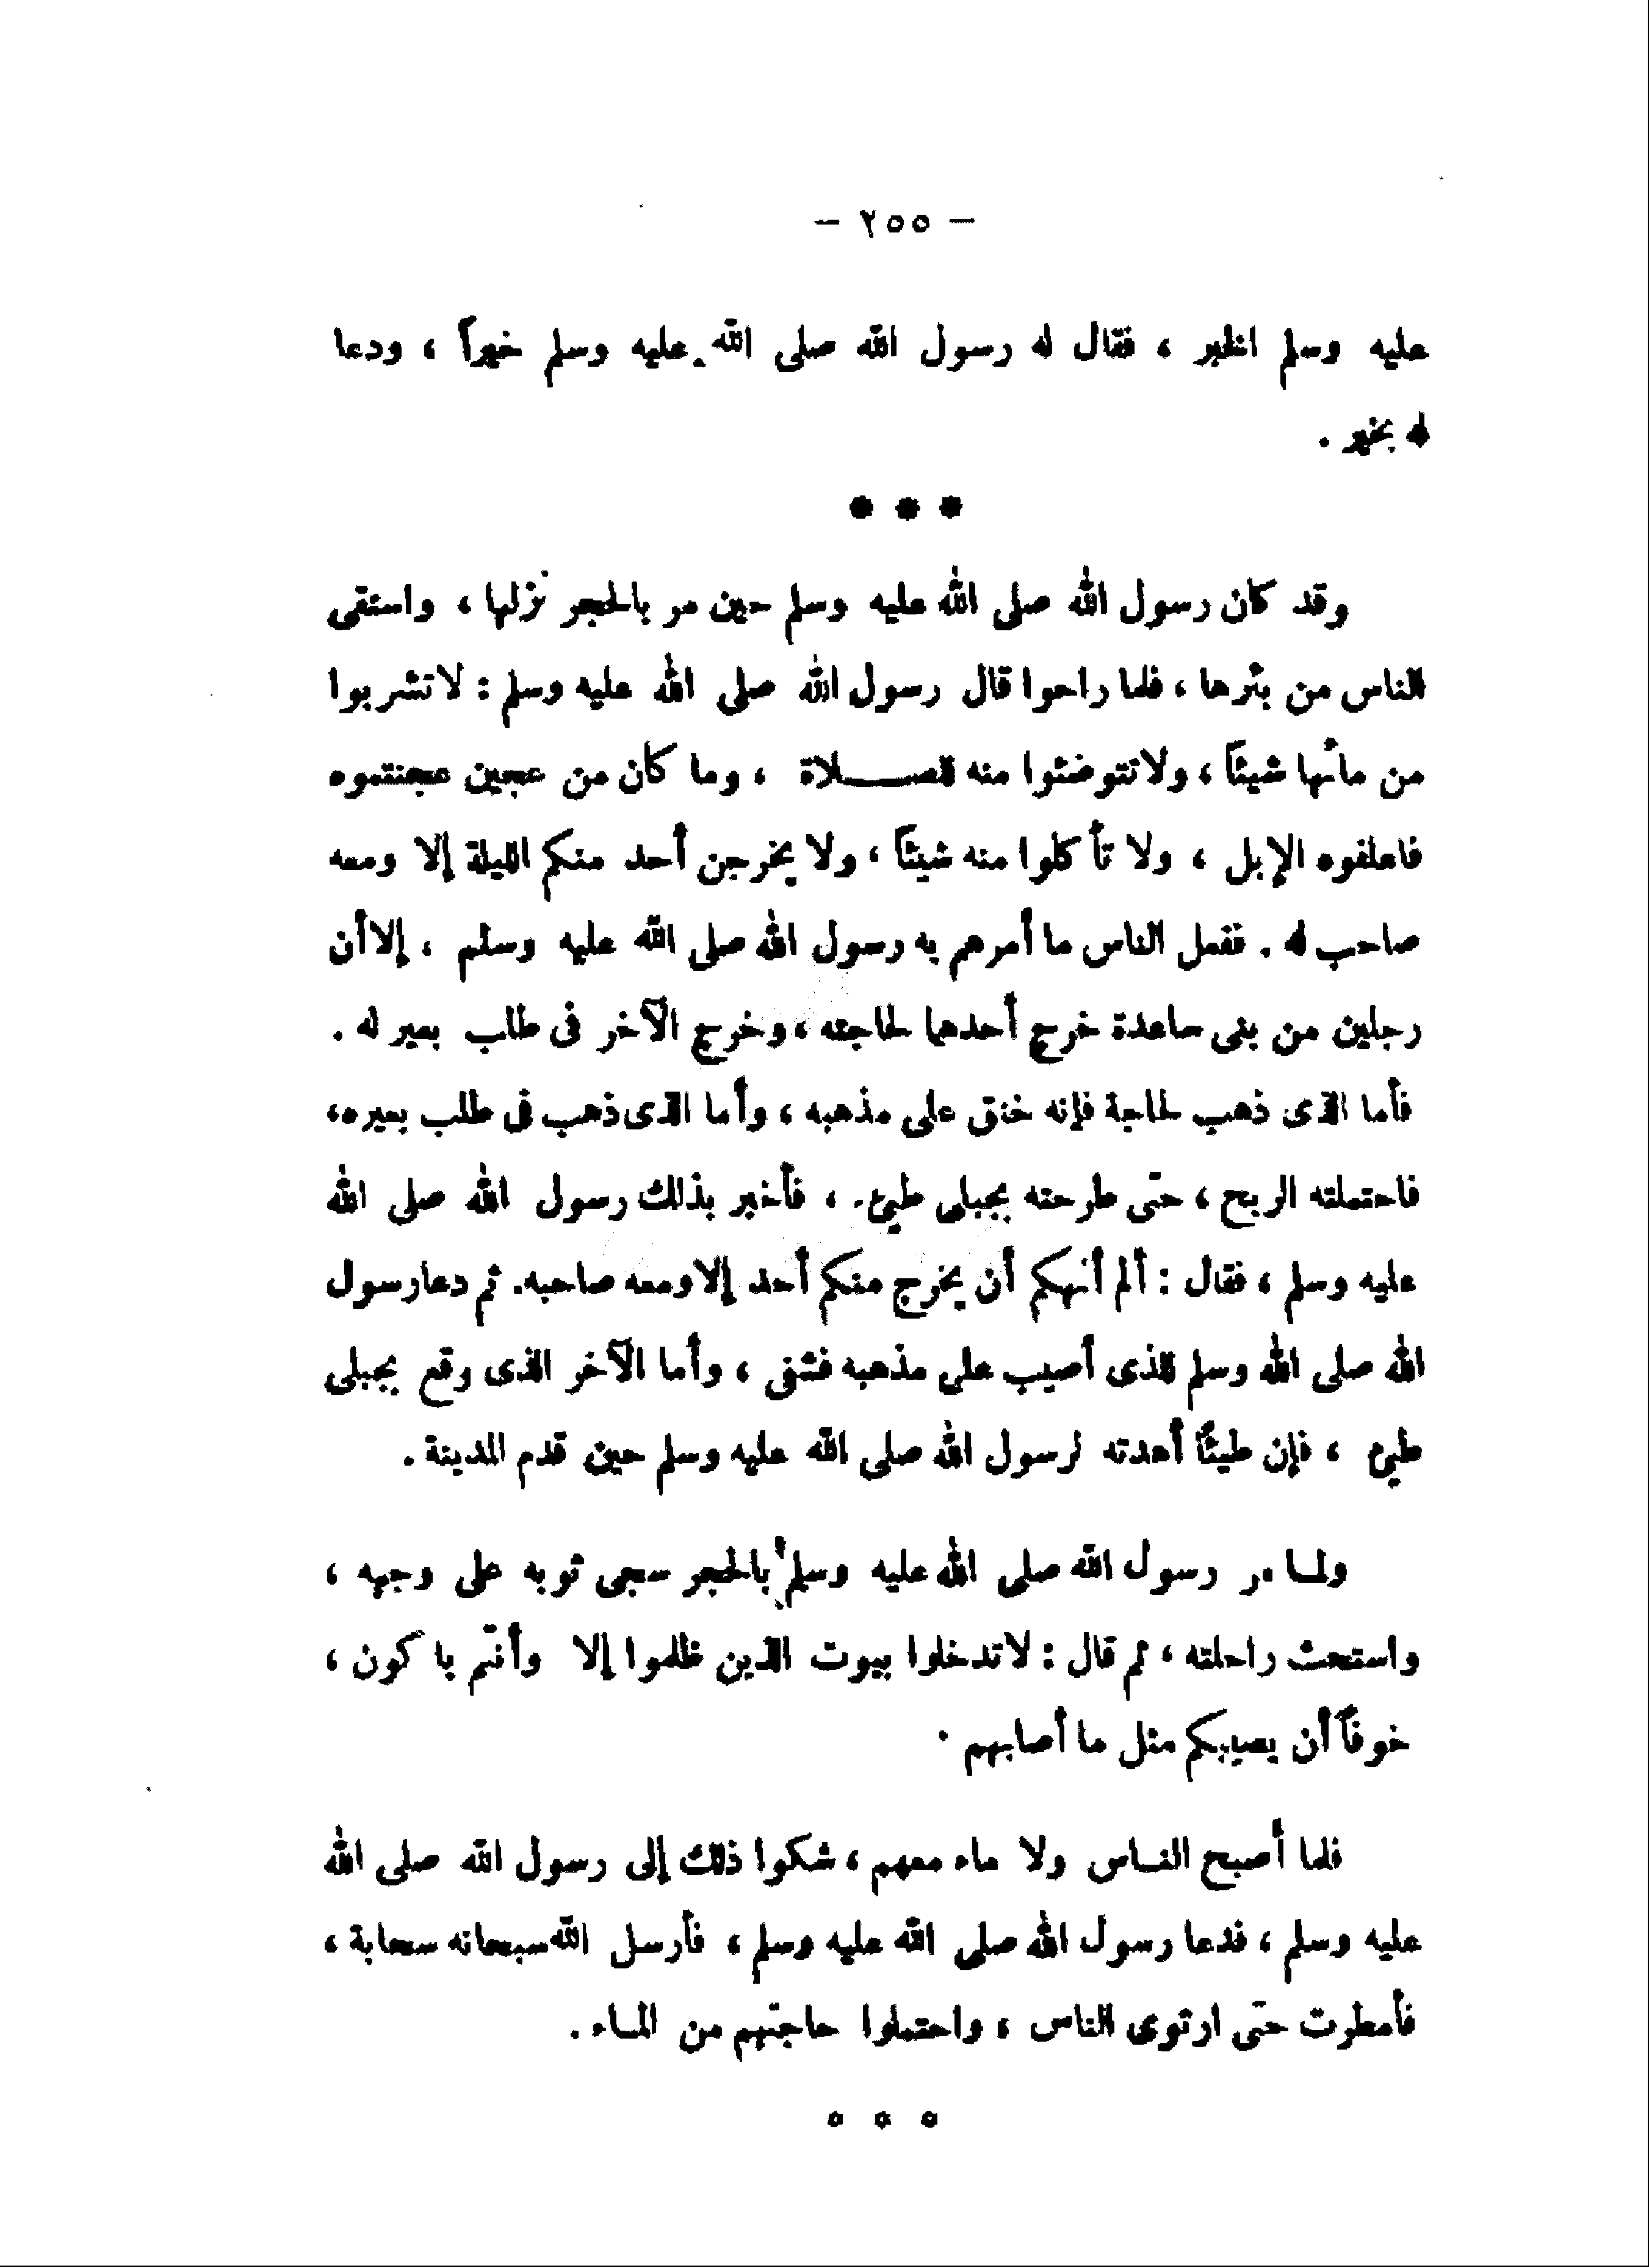 — ٢٥٥ —
عليه وسلم الخبر ، فقال له رسول الله صلى الله عليه وسلم خيراً ، ودعا
له بخير .
* * *
وقد كان رسول الله صلى الله عليه وسلم حين مر بالحجر نزلها ، واستقى
الناس من بئرها ، فلما راحوا قال رسول الله صلى الله عليه وسلم : لا تشربوا
من مائها شيئاً ، ولا تتوضئوا منه للصـــلاة ، وما كان من عجين عجنتموه
فاعلفوه الإبل ، ولا تأكلوا منه شيئاً ، ولا يخرجن أحد منكم الليلة إلا ومعه
صاحب له . ففعل الناس ما أمرهم به رسول الله صلى الله عليه وسلم ، إلا أن
رجلين من بنى ساعدة خرج أحدهما لحاجته ، وخرج الآخر فى طلب بعير له .
فأما الذى ذهب لحاجة فإنه خنق على مذهبه ، وأما الذى ذهب فى طلب بعيره،
فاحتملته الريح ، حتى طرحته بجبلى طيئ. ، فأخبر بذلك رسول الله صلى الله
عليه وسلم ، فقال : ألم أنهكم أن يخرج منكم أحد إلا ومعه صاحبه. ثم دعا رسول
الله صلى الله وسلم للذى أصيب على مذهبه فشفى ، وأما الآخر الذى وقع بجبلى
طيئ ، فإن طيئًا أهدته لرسول الله صلى الله عليه وسلم حين قدم المدينة .
ولمـا مر رسول الله صلى الله عليه وسلم بالحجر سجى ثوبه على وجهه ،
واستحث راحلته ، ثم قال : لا تدخلوا بيوت الذين ظلموا إلا وأنتم باكون ،
خوفاً أن يصيبكم مثل ما أصابهم .
فلما أصبح النـاس ولا ماء معهم ، شكوا ذلك إلى رسول الله صلى الله
عليه وسلم ، فدعا رسول الله صلى الله عليه وسلم ، فأرسل الله سبحانه سحابة ،
فأمطرت حتى ارتوى الناس ، واحتملوا حاجتهم من المـاء .
* * *